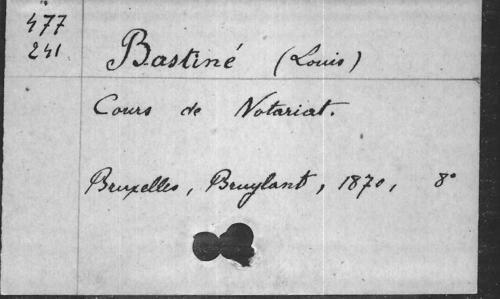 477
241
Bastiné (Louis)
Cours de Notariat.
Bruxelles, Bruylant, 1870, 8°